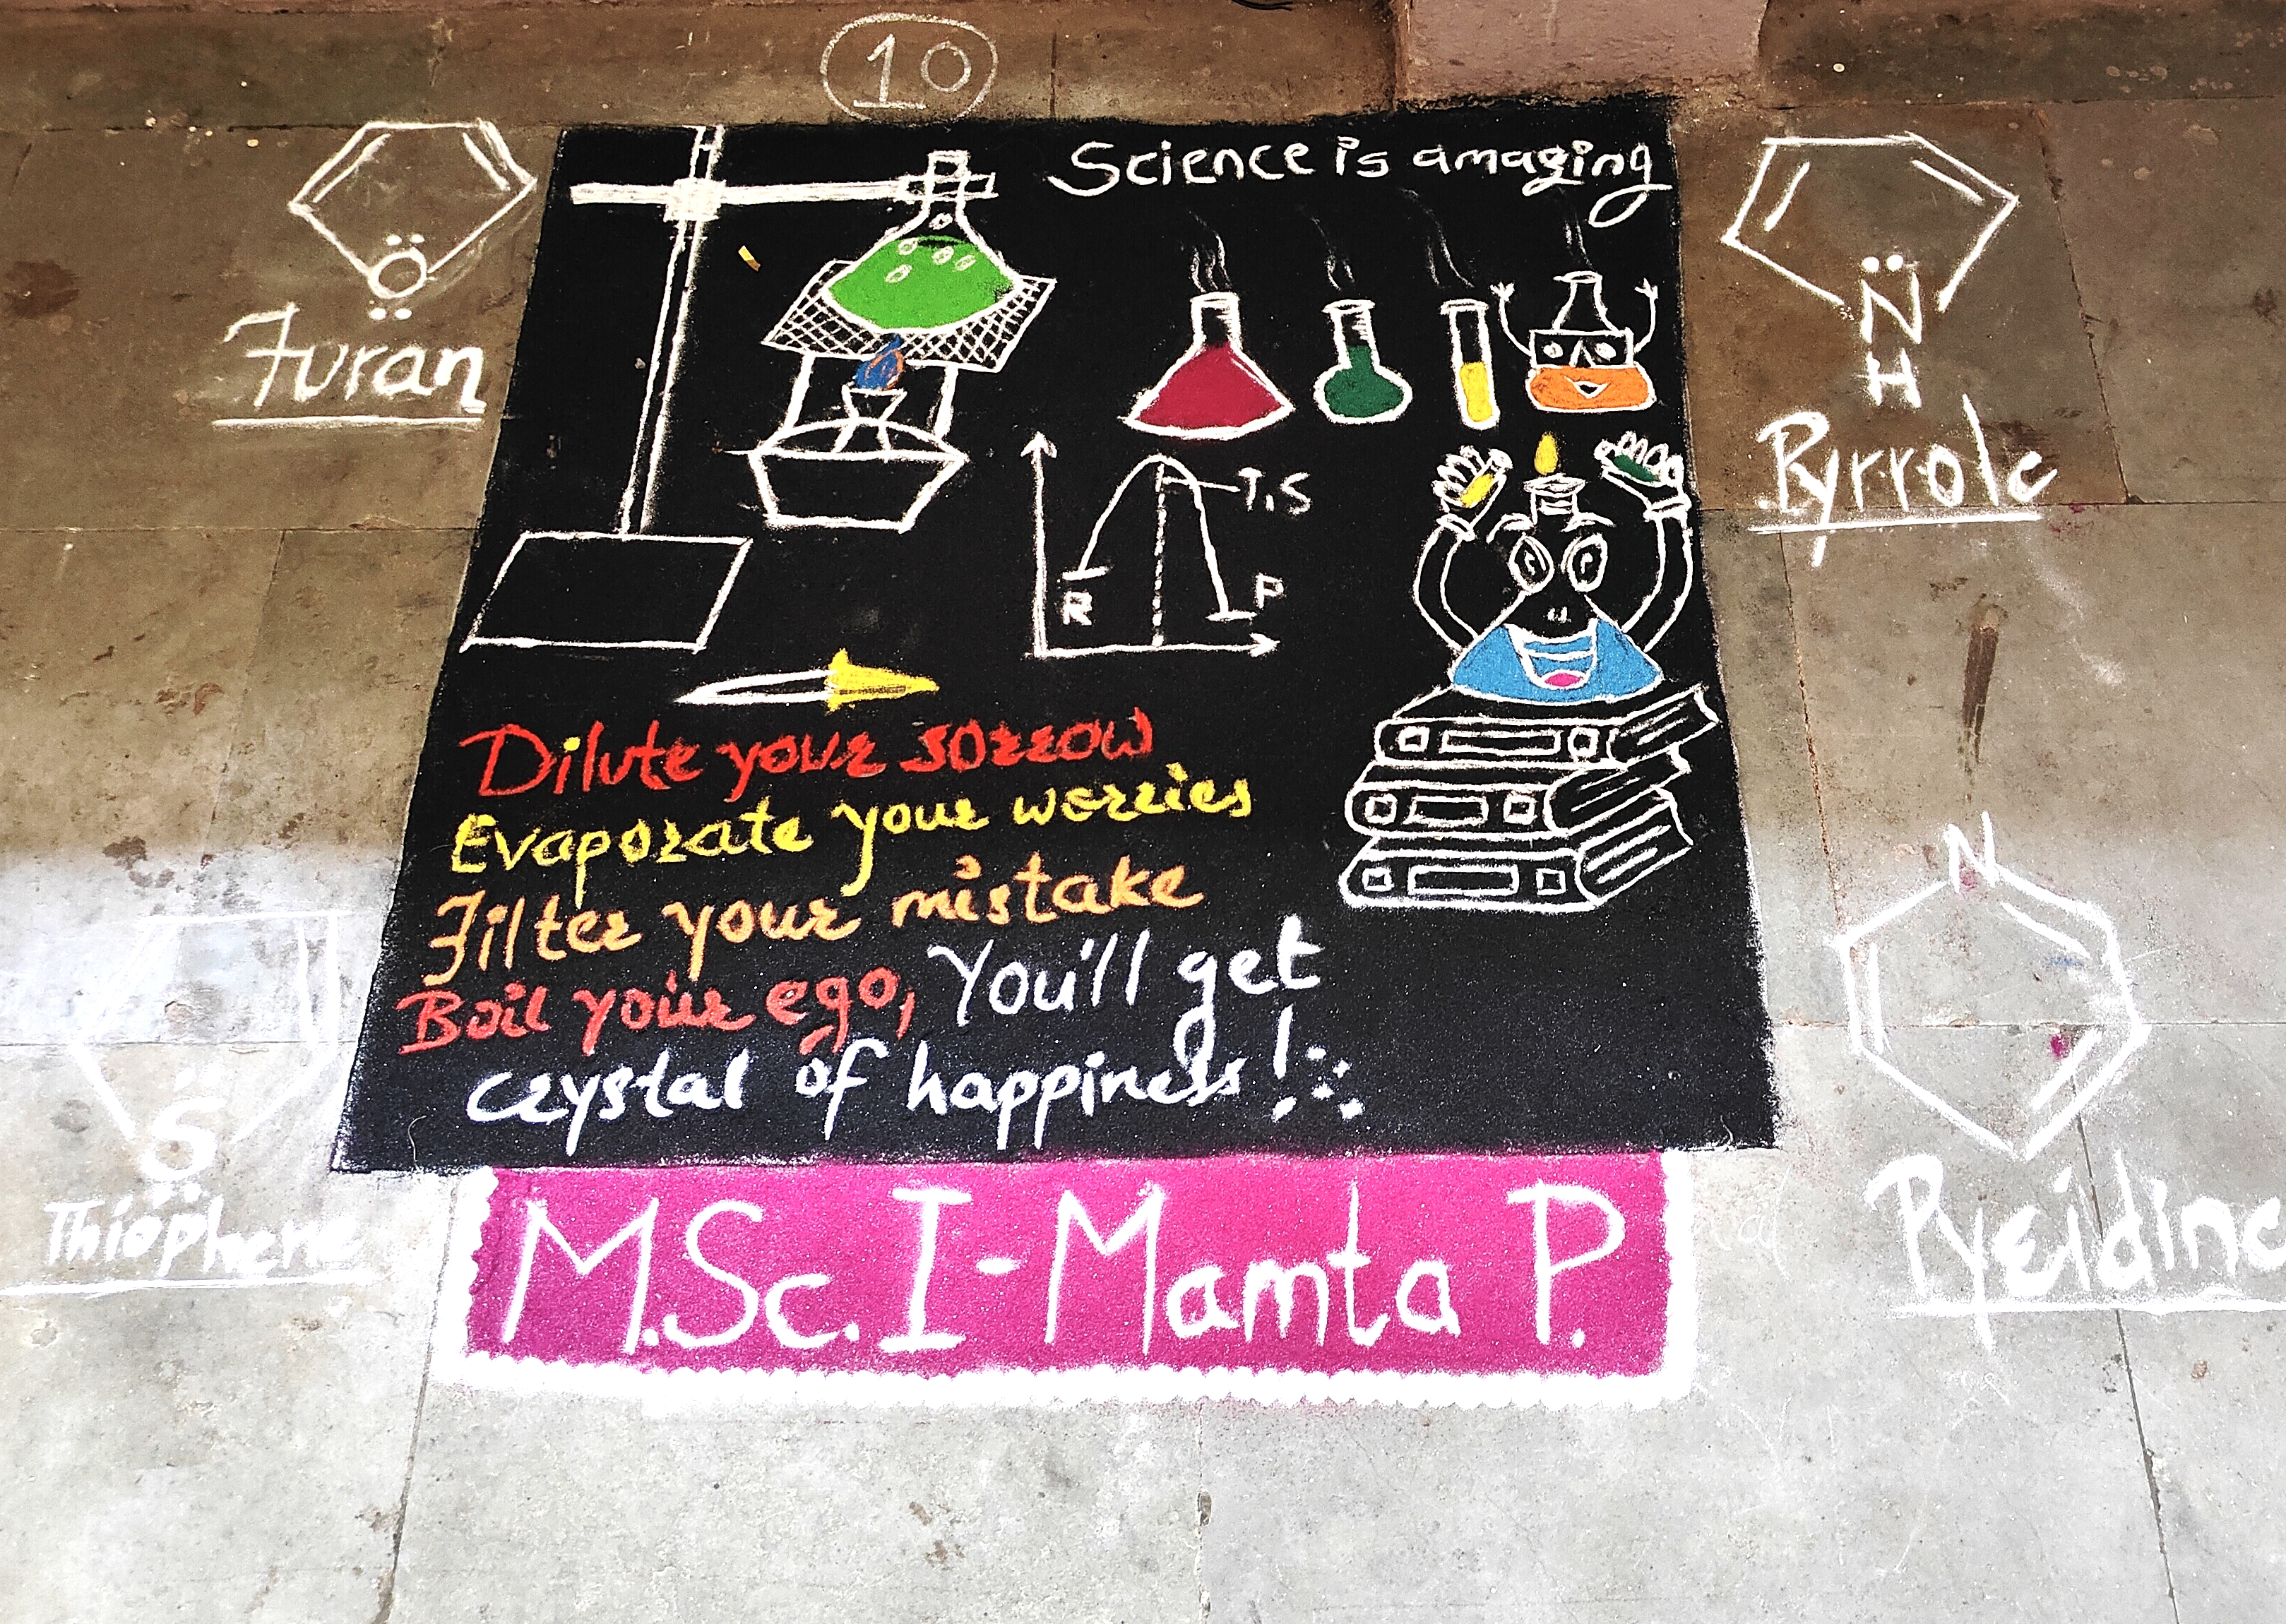 10
Science is amazing
Furan
O
Pyrrole
N
H
T.S
R
P
Dilute your sorrow
Evaporate your worries
Filter your mistake
Boil your ego, You'll get
crystal of happiness!
N
S
Thiophene
Pyridine
M.Sc. I - Mamta P.